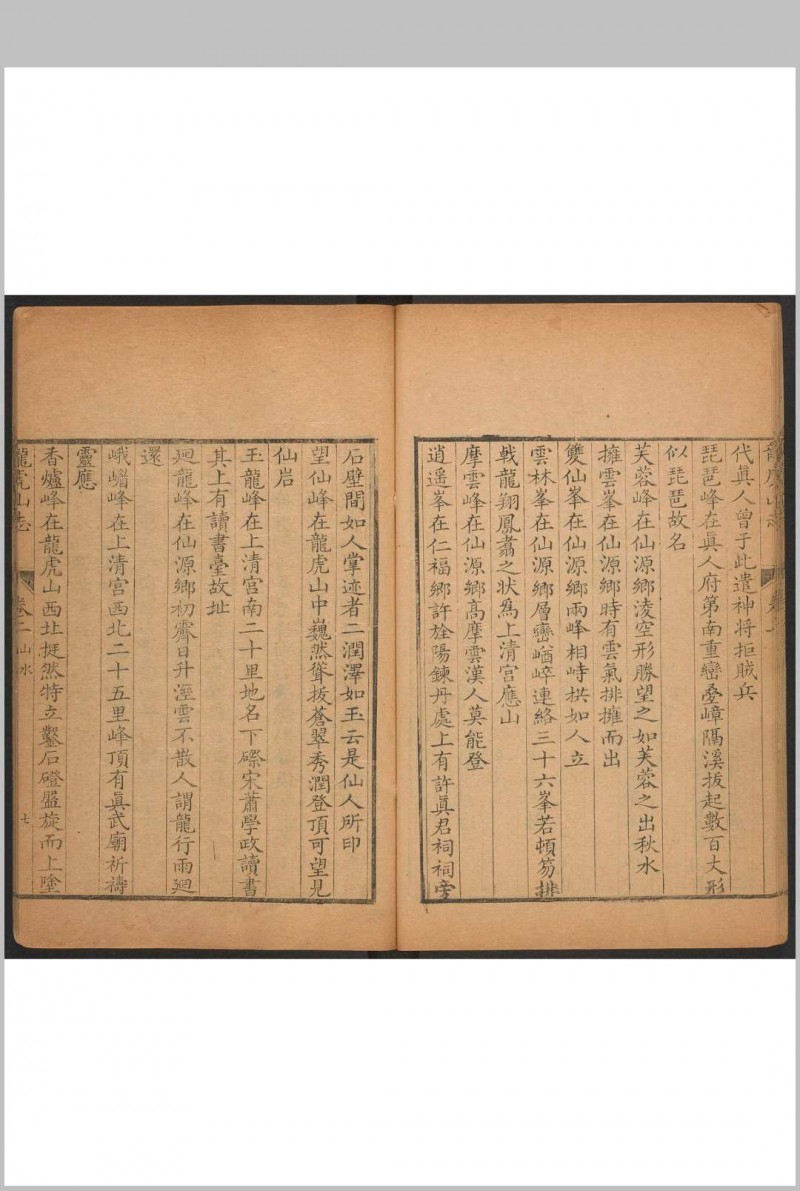 代眞人曾于此遣神将拒賊兵
琵琶峰在眞人府第南重巒疊嶂隔溪拔起數百丈形
似琵琶故名
芙蓉峰在仙源鄉淩空形勝望之如芙蓉之出秋水
擁雲峯在仙源鄉時有雲氣排擁而出
雙仙峯在仙源鄉兩峰相峙拱如人立
雲林峯在仙源鄉層巒崷崪連絡三十六峯若頓笏排
戟龍翔鳳翥之狀爲上清宫應山
摩雲峰在仙源鄉高摩雲漢人莫能登
逍遥峯在仁福鄉許旌陽鍊丹處上有許眞君祠祠旁
石壁間如人掌迹者二潤澤如玉云是仙人所印
望仙峰在龍虎山中巍然聳拔蒼翠秀潤登頂可望見
仙岩
玉龍峰在上清宫南二十里地名下磜宋蕭學政讀書
其上有讀書臺故址
廻龍峰在仙源鄉初霽日升溼雲不散人謂龍行雨廻
還
峨嵋峰在上清宫西北二十五里峰頂有眞武廟祈禱
靈應
香爐峰在龍虎山西址挺然特立鑿石磴盤旋而上墜
龍虎山志 卷二 山水 七